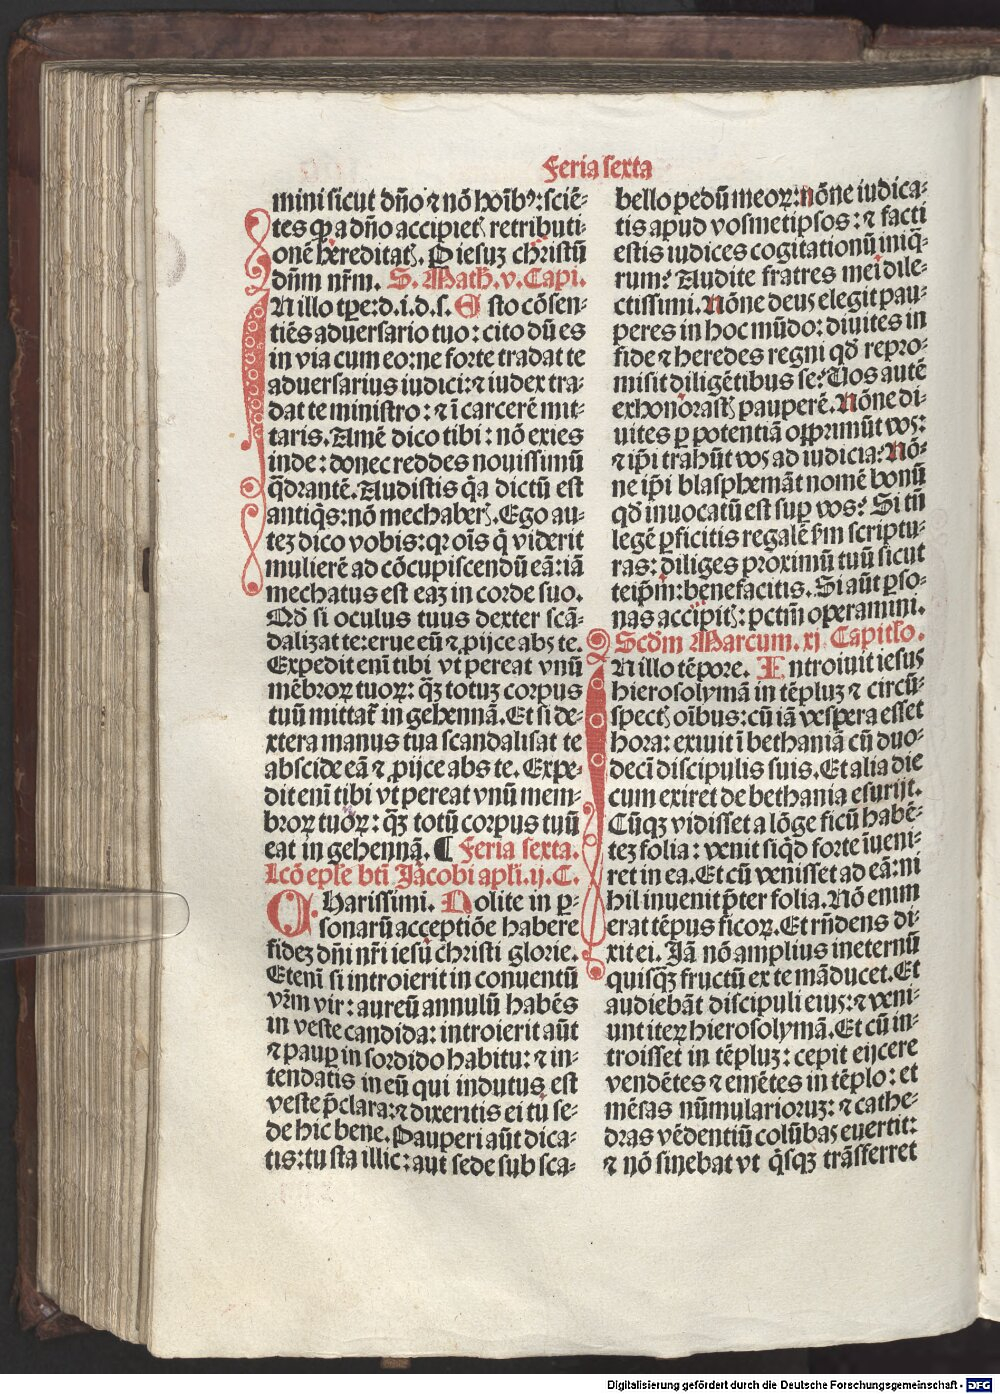 Feria sexta
mini sicut dño ⁊ nõ hoĩbꝰ: sciẽ⸗
tes ꝙ a dño accipietꝭ retributi⸗
onẽ hereditatꝭ. P iesuꝫ christũ
dñm nr̃m. S. Math. v. Capi.
N illo tꝑe: d. i. d. s. E sto cõsen⸗
tiẽs aduersario tuo: cito dũ es
in via cum eo: ne forte tradat te
aduersarius iudici: ⁊ iudex tra⸗
dat te ministro: ⁊ ĩ carcerẽ mit⸗
taris. Amẽ dico tibi: nõ exies
inde: donec reddes nouissimũ
q̃drantẽ. Audistis q̃a dictũ est
antiq̃s: nõ mechaberꝭ. Ego au⸗
teꝫ dico vobis: qꝛ oĩs q̃ viderit
mulierẽ ad cõcupiscendũ eã: iã
mechatus est eaꝫ in corde suo.
Qđ si oculus tuus dexter scã⸗
dalizat te: erue eũ ⁊ ꝓijce abs te.
Expedit enĩ tibi vt pereat vnũ
mẽbroꝝ tuoꝝ: q̃ꝫ totuꝫ corpus
tuũ mittat̃ in gehennã. Et si de⸗
xtera manus tua scandalisat te
abscide eã ⁊ ꝓijce abs te. Expe⸗
dit enĩ tibi vt pereat vnũ mem⸗
broꝝ tuoꝝ: q̃ꝫ totũ corpus tuũ
eat in gehennã. ¶ Feria sexta.
Lcõ ep̃le bt̃i Jacobi apl̃i. ij. C.
CHarissimi. Nolite in ꝑ⸗
sonarũ acceptiõe habere
fideꝫ dñi nr̃i iesũ christi glorie.
Etenĩ si introierit in conuentũ
vr̃m vir: aureũ annulũ habẽs
in veste candida: introierit aũt
⁊ pauꝑ in sordido habitu: ⁊ in⸗
tendatis in eũ qui indutus est
veste p̃clara: ⁊ dixeritis ei tu se⸗
de hic bene. Pauperi aũt dica⸗
tis: tu sta illic: aut sede sub sca⸗
bello pedũ meoꝝ: nõne iudica⸗
tis apud vosmetipsos: ⁊ facti
estis iudices cogitationũ iniq̃⸗
rum? Audite fratres mei dile⸗
ctissimi. Nõne deus elegit pau⸗
peres in hoc mũdo: diuites in
fide ⁊ heredes regni qđ repro⸗
misit diligẽtibus se? Uos autẽ
exhonorastꝭ pauperẽ. Nõne di⸗
uites ꝑ potentiã opprimũt vos:
⁊ ip̃i trahũt vos ad iudicia? Nõ⸗
ne ip̃i blasphemãt nomẽ bonũ
qđ inuocatũ est suꝑ vos? Si tñ
legẽ ꝑficitis regalẽ ẜm scriptu⸗
ras: diliges proximũ tuũ sicut
teip̃m: benefacitis. Si aũt ꝑso⸗
nas accipitꝭ: pctm̃ operamini.
Scđm Marcum. xj. Capitl̃o.
N illo tẽpore. Introiuit iesus
hierosolymã in tẽpluꝫ ⁊ circũ⸗
spectꝭ oĩbus: cũ iã vespera esset
hora: exiuit ĩ bethaniã cũ duo⸗
decĩ discipulis suis. Et alia die
cum exiret de bethania esurijt.
Cũqꝫ vidisset a lõge ficũ habẽ⸗
teꝫ folia: venit siq̃d forte ĩueni⸗
ret in ea. Et cũ venisset ad eã: ni
hil inuenit p̃ter folia. Nõ enim
erat tẽpus ficoꝝ. Et rñdens di⸗
xit ei. Jã nõ amplius in eternũ
quisq̃ꝫ fructũ ex te mãducet. Et
audiebãt discipuli eius: ⁊ veni⸗
unt iteꝝ hierosolymã. Et cũ in⸗
troisset in tẽpluꝫ: cepit eijcere
vendẽtes ⁊ emẽtes in tẽplo: et
mẽsas nũmularioruꝫ: ⁊ cathe⸗
dras vẽdentiũ colũbas euertit:
⁊ nõ sinebat vt q̃sqꝫ trãsferret
Digitalisierung gefördert durch die Deutsche Forschungsgemeinschaft - DFG